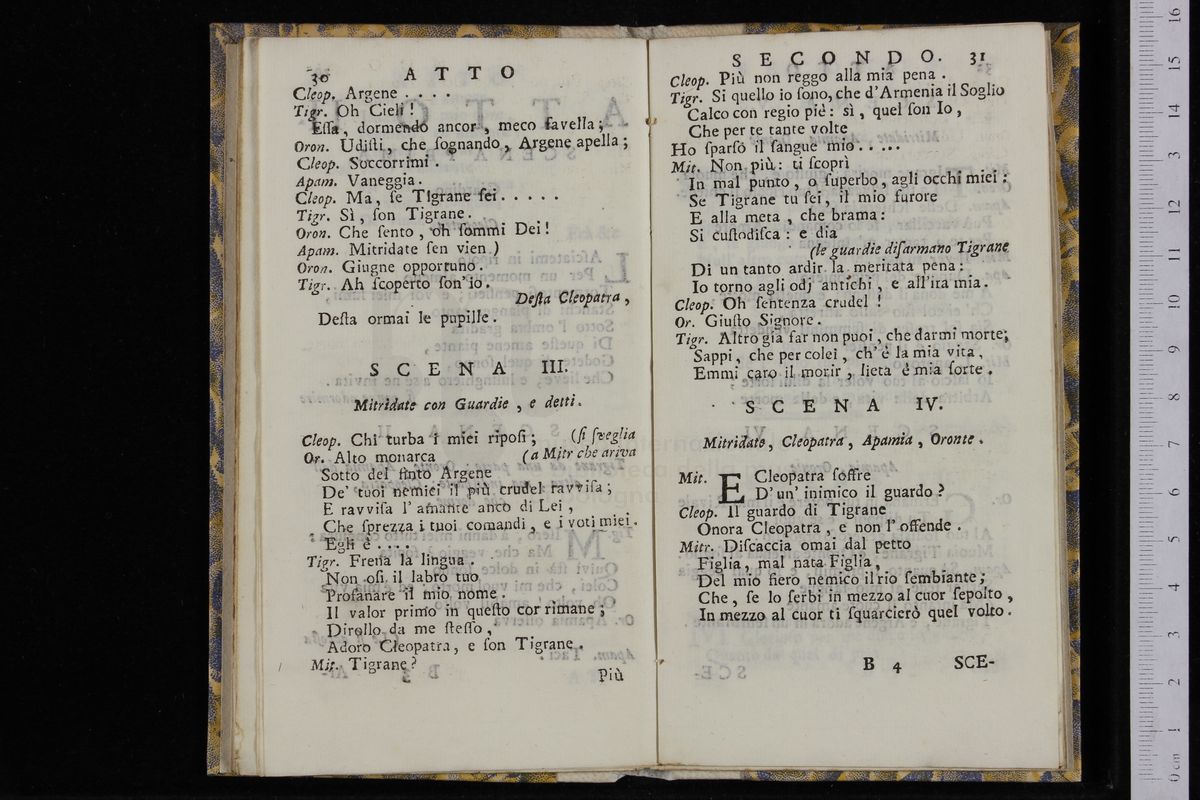 30 ATTO
Cleop. Argene . . . .
Tigr. Oh Cieli !
Eſſa, dormendo ancor, meco favella;
Oron. Udiſti, che ſognando, Argene apella;
Cleop. Soccorrimi.
Apam. Vaneggia.
Cleop. Ma, ſe Tigrane ſei. . . . .
Tigr. Sì, ſon Tigrane.
Oron. Che ſento, oh ſommi Dei!
Apam. Mitridate ſen vien )
Oron. Giugne opportuno.
Tigr. Ah ſcoperto ſon' io.
Deſta Cleopatra,
Deſta ormai le pupille.
SCENA III.
Mitridate con Guardie, e detti.
Cleop. Chi turba i miei ripoſi; (ſi ſveglia
Or. Alto monarca (a Mitr che ariva
Sotto del finto Argene
De' tuoi nemici il più crudel ravviſa;
E ravviſa l' amante anco di Lei,
Che ſprezza i tuoi comandi, e i voti miei.
Egli è . . . .
Tigr. Frena la lingua.
Non oſi il labro tuo
Profanare il mio nome.
Il valor primo in queſto cor rimane;
Dirollo da me ſteſſo,
Adoro Cleopatra, e ſon Tigrane.
Mit. Tigrane?
Più
SECONDO. 31
Cleop. Più non reggo alla mia pena.
Tigr. Sì quello io ſono, che d'Armenia il Soglio
Calco con regio piè: sì, quel ſon Io,
Che per te tante volte
Ho ſparſo il ſangue mio. . . . .
Mit. Non più: ti ſcoprì
In mal punto, o ſuperbo, agli occhi miei:
Se Tigrane tu ſei, il mio furore
E alla meta, che brama:
Si cuſtodiſca: e dia
(le guardie diſarmano Tigrane
Di un tanto ardir la meritata pena:
Io torno agli odj antichi, e all'ira mia.
Cleop. Oh ſentenza crudel !
Or. Giuſto Signore.
Tigr. Altro già far non puoi, che darmi morte;
Sappi, che per colei, ch' è la mia vita,
Emmi caro il morir, lieta è mia ſorte.
SCENA IV.
Mitridate, Cleopatra, Apamia, Oronte.
Mit. E Cleopatra ſoffre
D' un' inimico il guardo?
Cleop. Il guardo di Tigrane
Onora Cleopatra, e non l' offende.
Mitr. Diſcaccia omai dal petto
Figlia, mal nata Figlia,
Del mio fiero nemico il rio ſembiante;
Che, ſe lo ſerbi in mezzo al cuor ſepolto,
In mezzo al cuor ti ſquarcierò quel volto.
B 4 SCE-